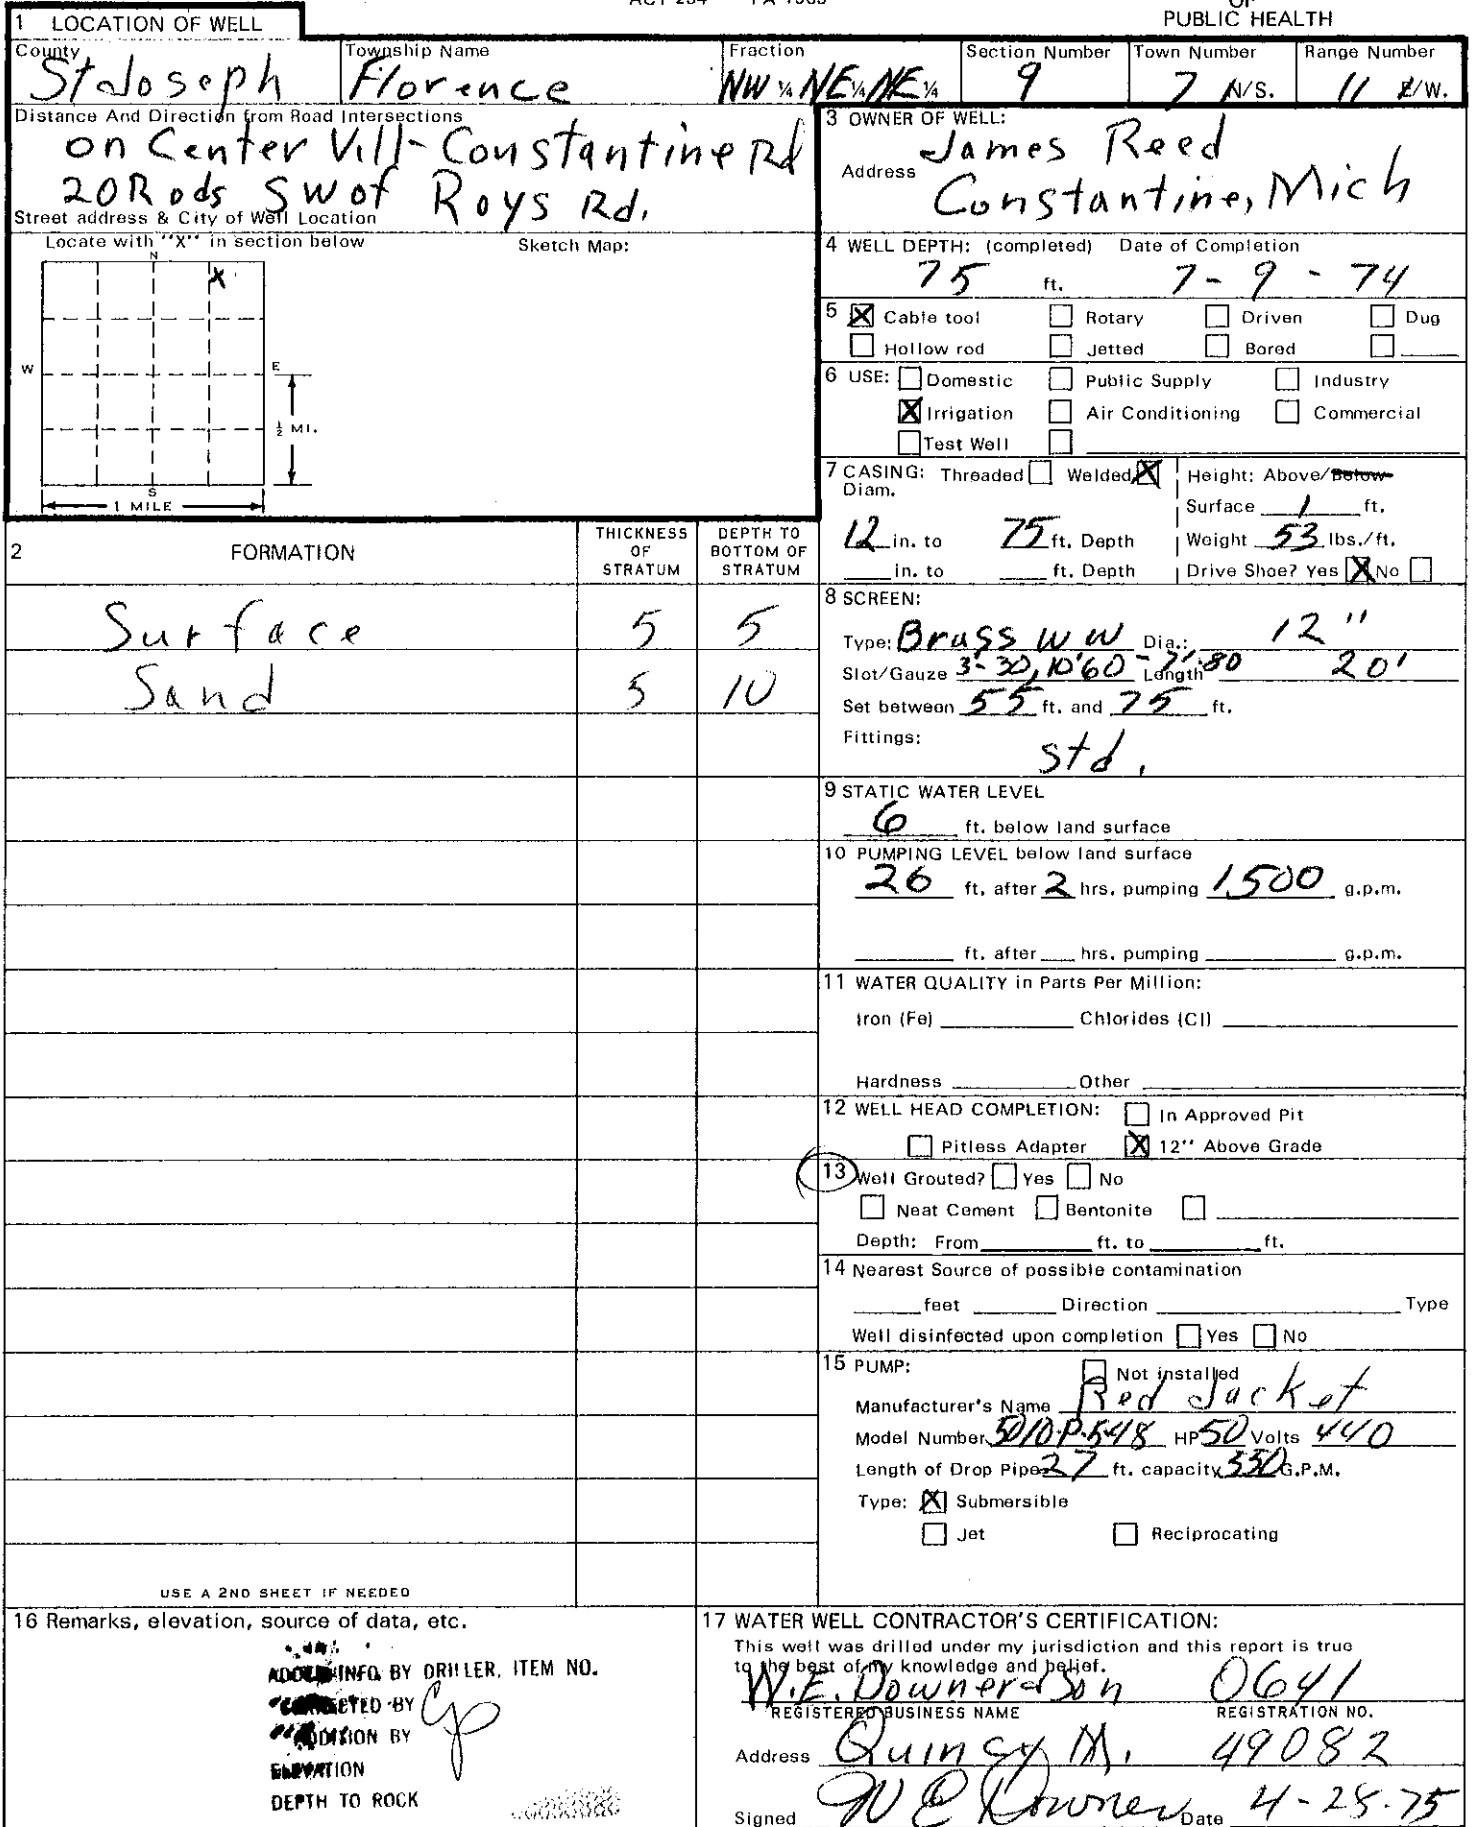 ACT 294 PA 1965
OF
PUBLIC HEALTH
1 LOCATION OF WELL
County
St Joseph
Township Name
Florence
Fraction
NW ¼ NE ¼ NE ¼
Section Number
9
Town Number
7 N/S.
Range Number
11 E/W.
Distance And Direction from Road Intersections
on Center Vill-Constantine Rd
20 Rods SW of Roys Rd.
Street address & City of Well Location
Locate with "X" in section below
Sketch Map:
N
X
W
E
½ MI.
S
1 MILE
3 OWNER OF WELL:
James Reed
Address
Constantine, Mich
4 WELL DEPTH: (completed) Date of Completion
75 ft. 7-9-74
5 X Cable tool Rotary Driven Dug
Hollow rod Jetted Bored
6 USE: Domestic Public Supply Industry
X Irrigation Air Conditioning Commercial
Test Well
7 CASING: Threaded Welded X
Diam.
12 in. to 75 ft. Depth
in. to ft. Depth
Height: Above/Below
Surface 1 ft.
Weight 53 lbs./ft.
Drive Shoe? Yes X No
2 FORMATION
THICKNESS OF STRATUM
DEPTH TO BOTTOM OF STRATUM
Surface 5 5
Sand 5 10
USE A 2ND SHEET IF NEEDED
8 SCREEN:
Type: Brass WW Dia.: 12"
Slot/Gauze 3'-30, 10'60 - 7'-80 Length 20'
Set between 55 ft. and 75 ft.
Fittings:
std.
9 STATIC WATER LEVEL
6 ft. below land surface
10 PUMPING LEVEL below land surface
26 ft. after 2 hrs. pumping 1500 g.p.m.
ft. after hrs. pumping g.p.m.
11 WATER QUALITY in Parts Per Million:
Iron (Fe) Chlorides (Cl)
Hardness Other
12 WELL HEAD COMPLETION: In Approved Pit
Pitless Adapter X 12" Above Grade
13 Well Grouted? Yes No
Neat Cement Bentonite
Depth: From ft. to ft.
14 Nearest Source of possible contamination
feet Direction Type
Well disinfected upon completion Yes No
15 PUMP: Not installed
Manufacturer's Name Red Jacket
Model Number 5010-P-548 HP 50 Volts 440
Length of Drop Pipe 27 ft. capacity 550 G.P.M.
Type: X Submersible
Jet Reciprocating
16 Remarks, elevation, source of data, etc.
INFO BY DRILLER, ITEM NO.
CORRECTED BY
ADDITION BY
ELEVATION
DEPTH TO ROCK
17 WATER WELL CONTRACTOR'S CERTIFICATION:
This well was drilled under my jurisdiction and this report is true
to the best of my knowledge and belief.
W.E. Downer & Son 0641
REGISTERED BUSINESS NAME REGISTRATION NO.
Address Quincy M. 49082
Signed W E Downer Date 4-28-75